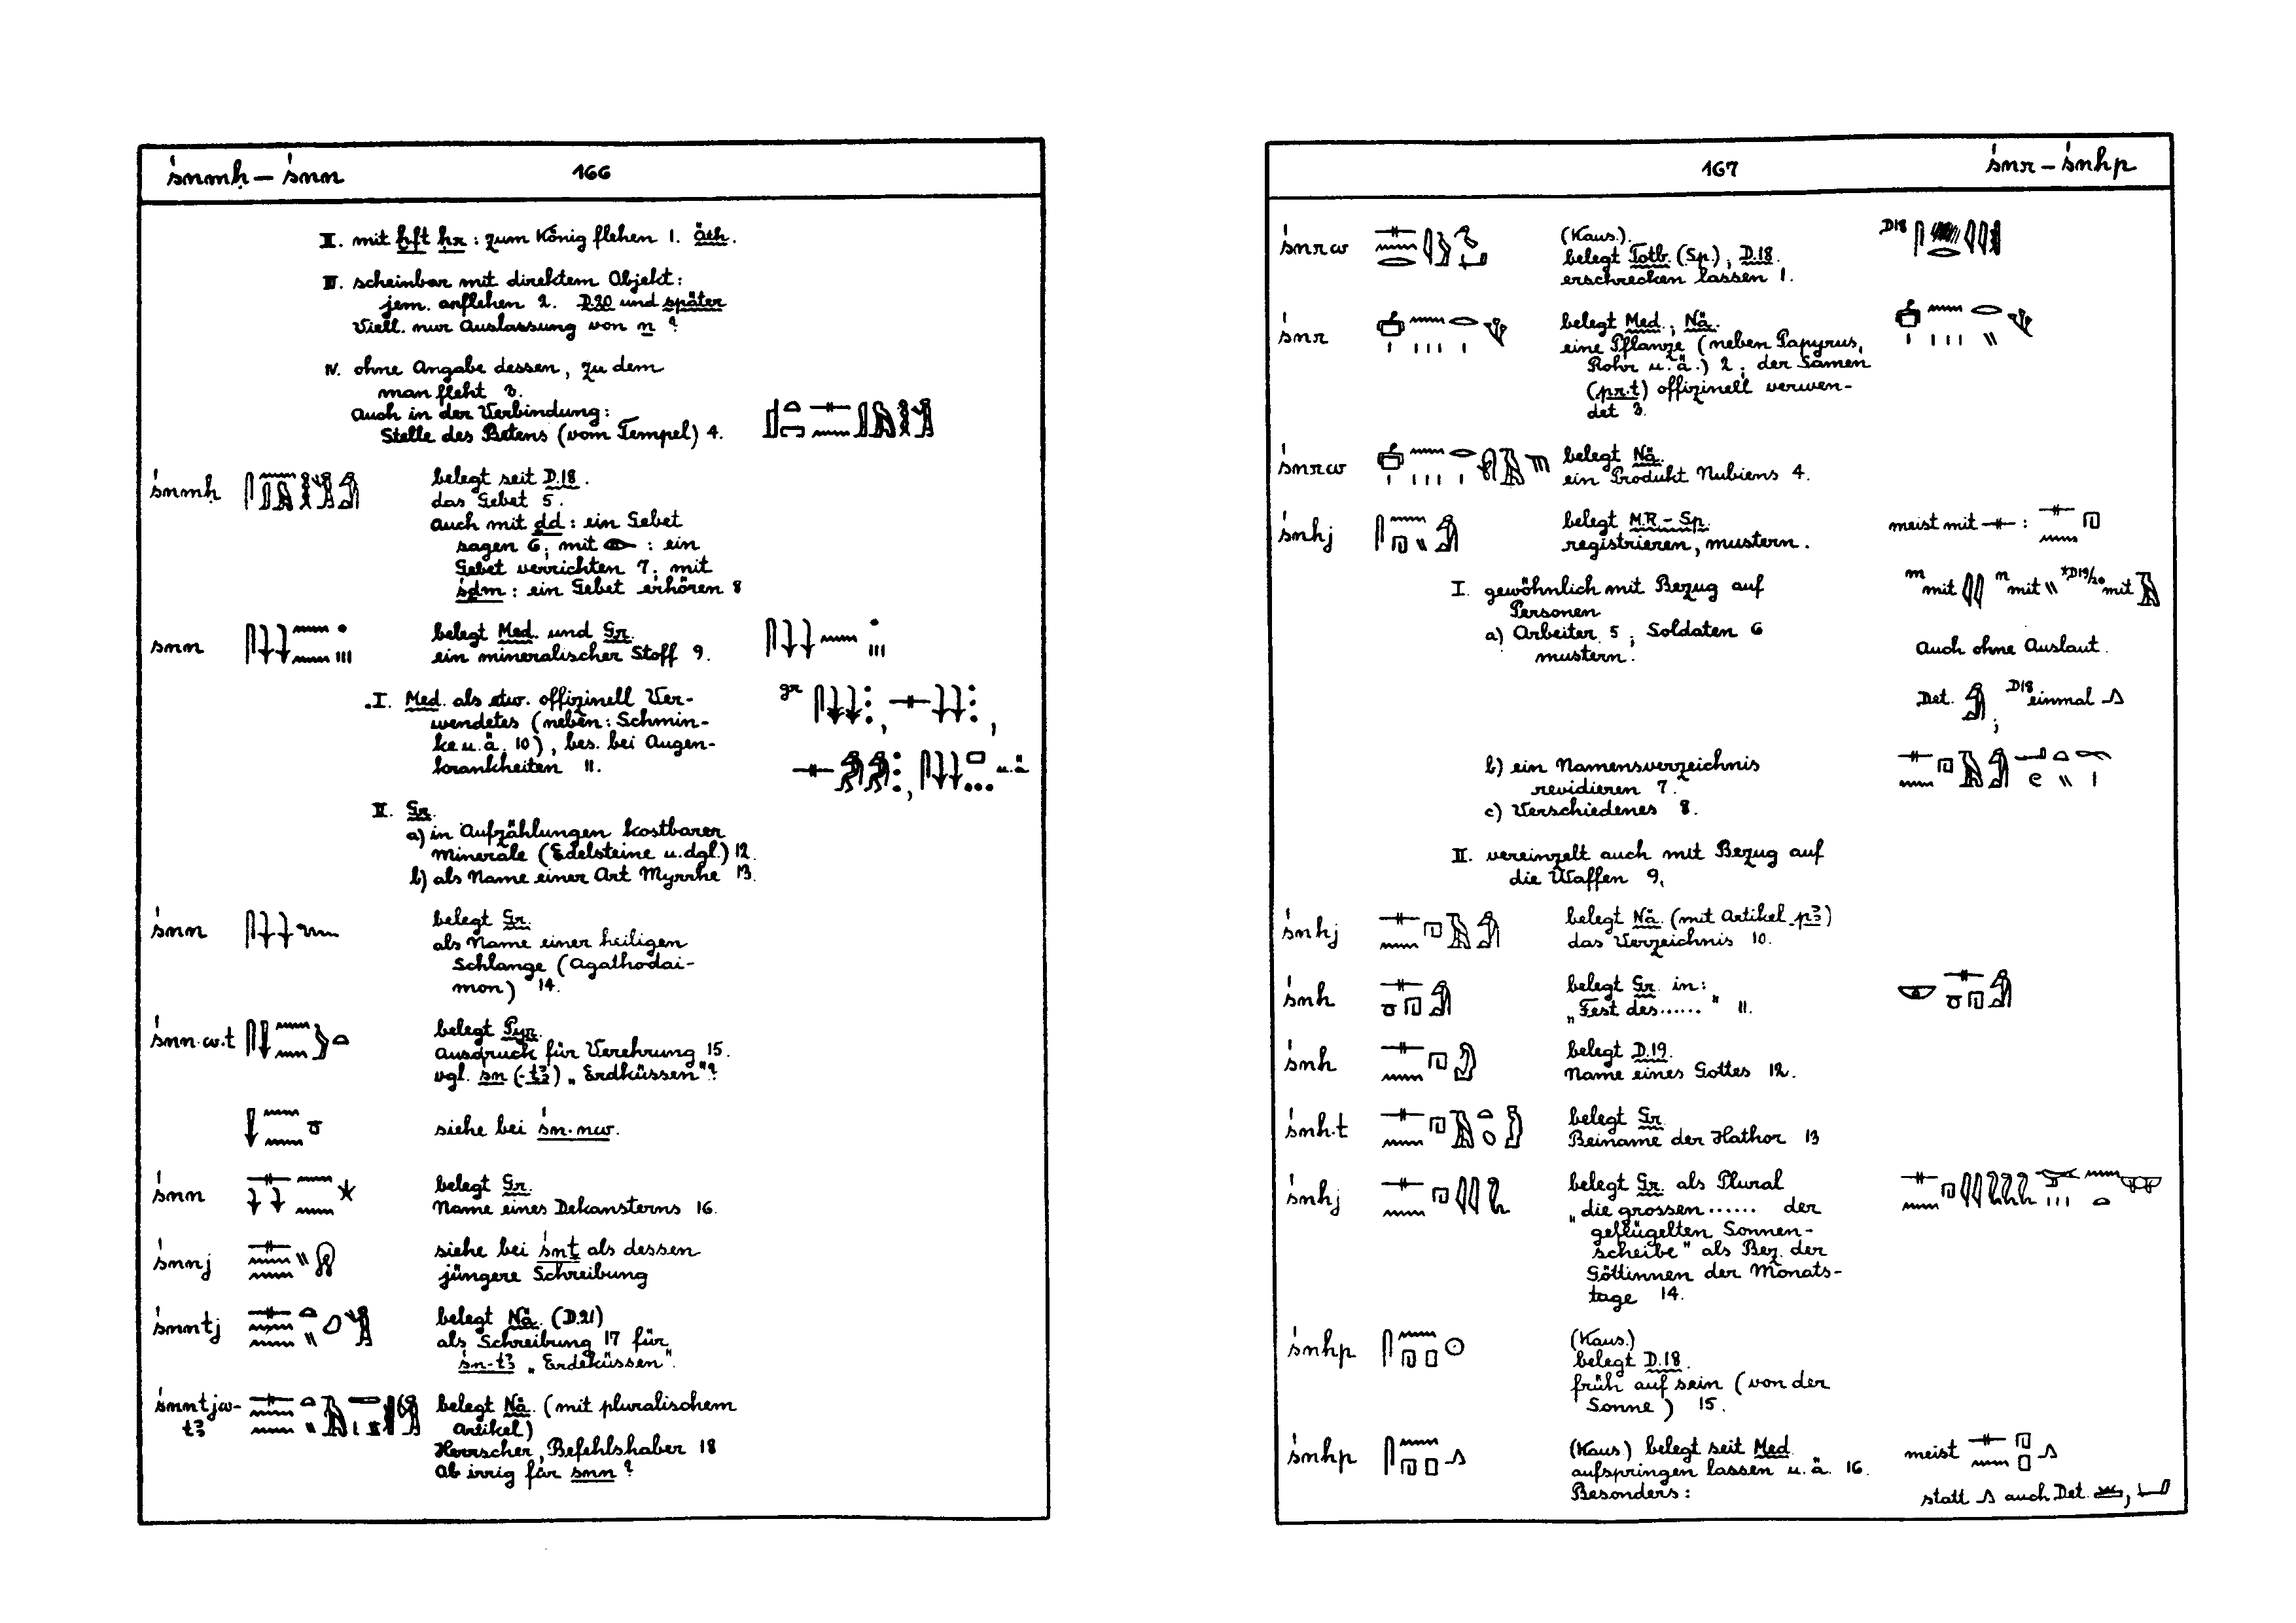 śnmḥ – śnn 166
II. mit ḫft ḥr : zum König flehen 1. Äth.
III. scheinbar mit direktem Objekt:
jem. anflehen 2. D.20 und später
Viell. nur Auslassung von n ?
IV. ohne Angabe dessen, zu dem
man fleht 3.
Auch in der Verbindung:
Stelle des Betens (vom Tempel) 4.
śnmḥ belegt seit D.18.
das Gebet 5.
auch mit dd : ein Gebet
sagen 6; mit : ein
Gebet verrichten 7; mit
śdm : ein Gebet erhören 8
snn belegt Med. und Gr.
ein mineralischer Stoff 9.
I. Med. als etw. offizinell Ver- gr
wendetes (neben: Schmin-
ke u.ä. 10), bes. bei Augen-
krankheiten 11. u.ä
II. Gr.
a) in Aufzählungen kostbarer
Minerale (Edelsteine u.dgl.) 12.
b) als Name einer Art Myrrhe 13.
śnn belegt Gr.
als Name einer heiligen
Schlange (Agathodai-
mon) 14.
śnn.w.t belegt Pyr.
Ausdruck für Verehrung 15.
vgl. sn (-t3) „Erdküssen"?
siehe bei śn.nw.
śnn belegt Gr.
Name eines Dekansterns 16.
śnnj siehe bei śnṯ als dessen
jüngere Schreibung
śnntj belegt Nä. (D.21)
als Schreibung 17 für
śn-t3 „Erdeküssen".
śnntjw- belegt Nä. (mit pluralischem
t3 Artikel)
Herrscher, Befehlshaber 18
Ob irrig für smn ?
167 śnr – śnhp
śnrw (Kaus.). D18
belegt Totb. (Sp.), D.18.
erschrecken lassen 1.
śnr belegt Med., Nä.
eine Pflanze (neben Papyrus,
Rohr u.ä.) 2; der Samen
(pr.t) offizinell verwen-
det 3.
śnrw belegt Nä.
ein Produkt Nubiens 4.
śnhj belegt M.R. – Sp. meist mit :
registrieren, mustern.
I. gewöhnlich mit Bezug auf m mit n mit *D19/20 mit
Personen
a) Arbeiter 5, Soldaten 6 Auch ohne Auslaut.
mustern.
Det. ; D18 einmal
b) ein Namensverzeichnis
revidieren 7.
c) Verschiedenes 8.
II. vereinzelt auch mit Bezug auf
die Waffen 9.
śnhj belegt Nä. (mit Artikel p3)
das Verzeichnis 10.
śnh belegt Gr. in:
„Fest des ...... " 11.
śnh belegt D.19.
Name eines Gottes 12.
śnh.t belegt Gr.
Beiname der Hathor 13
śnhj belegt Gr. als Plural
„die grossen ...... der
geflügelten Sonnen-
scheibe" als Bez. der
Göttinnen der Monats-
tage 14.
śnhp (Kaus.)
belegt D.18.
früh auf sein (von der
Sonne) 15.
śnhp (Kaus) belegt seit Med. meist
aufspringen lassen u.ä. 16.
Besonders: statt auch Det. ,